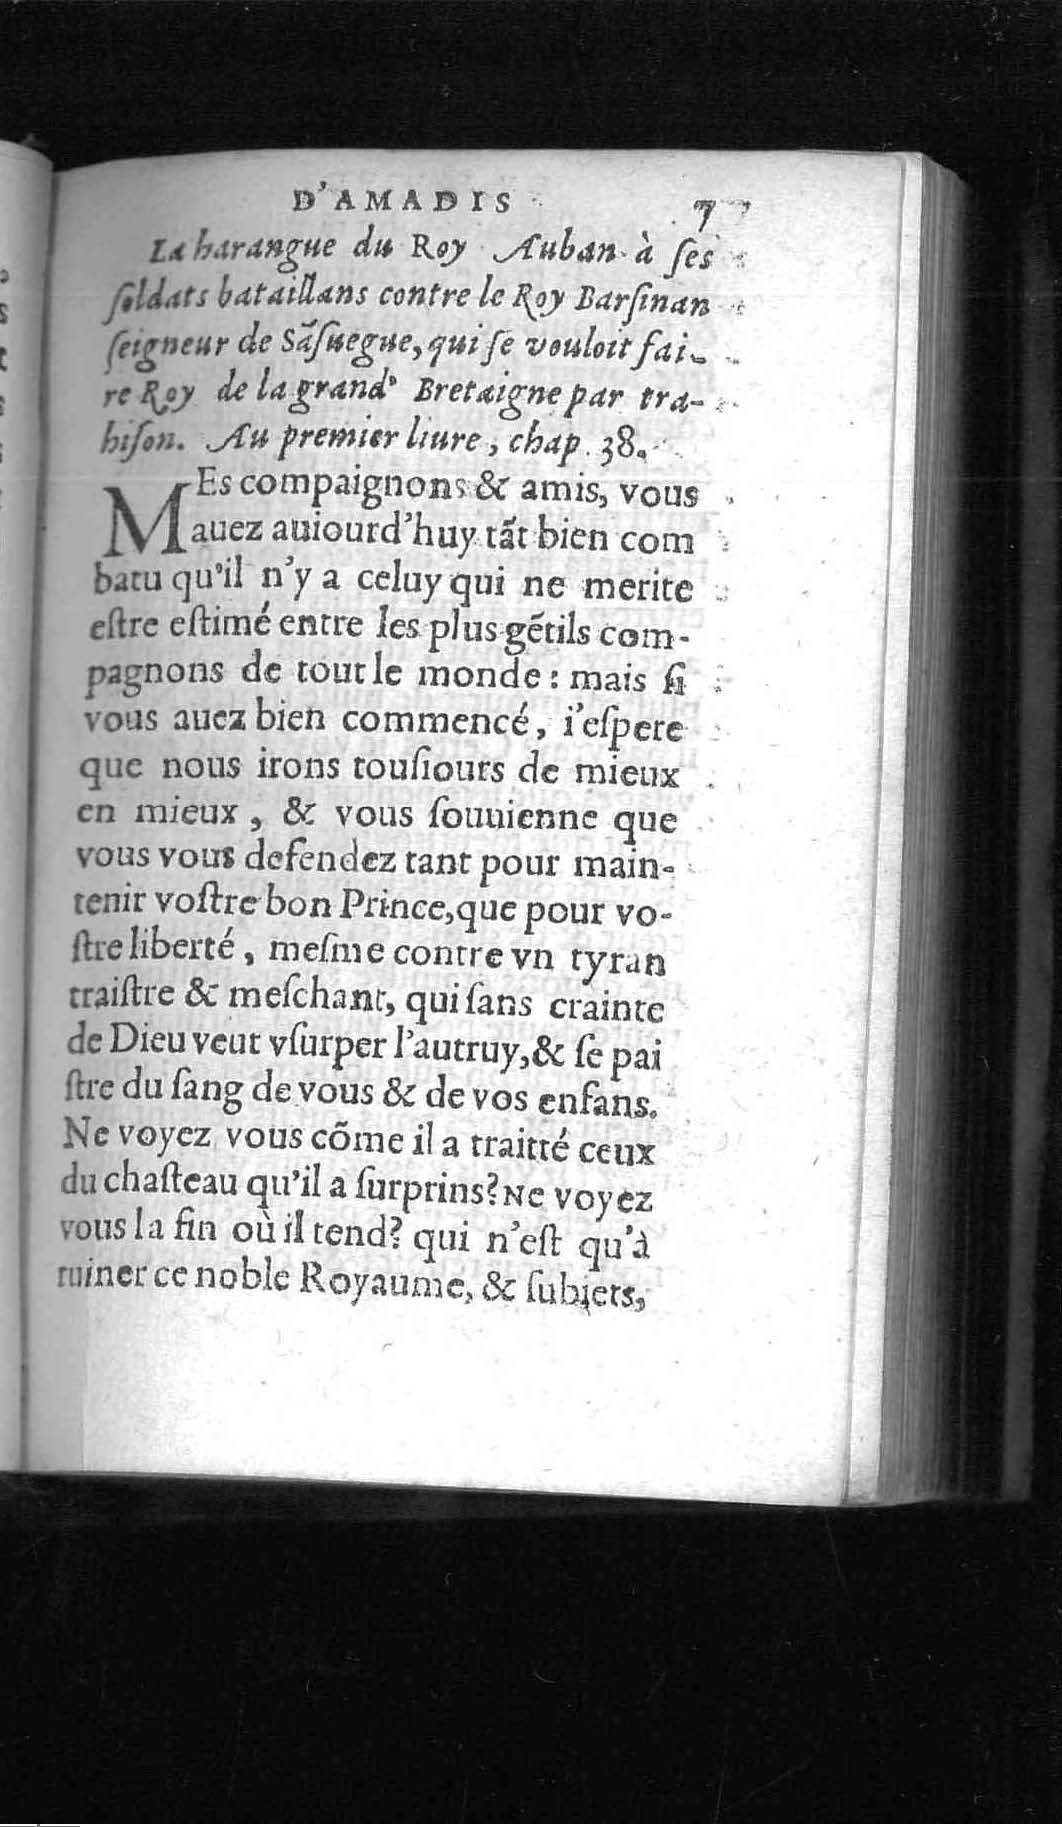 D'AMADIS 7
La harangue du Roy Auban à ſes
ſoldats bataillans contre le Roy Barſinan
ſeigneur de Sãſuegue, qui ſe vouloit fai-
re Roy de la grand' Bretaigne par tra-
hiſon. Au premier liure, chap. 38.
MEs compaignons & amis, vous
auez auiourd'huy tãt bien com
batu qu'il n'y a celuy qui ne merite
eſtre eſtimé entre les plus gẽtils com-
pagnons de tout le monde : mais ſi
vous auez bien commencé, i'eſpere
que nous irons touſiours de mieux
en mieux, & vous ſouuienne que
vous vous defendez tant pour main-
tenir voſtre bon Prince, que pour vo-
ſtre liberté, meſme contre vn tyran
traiſtre & meſchant, qui ſans crainte
de Dieu veut vſurper l'autruy, & ſe pai
ſtre du ſang de vous & de vos enfans.
Ne voyez vous cõme il a traitté ceux
du chaſteau qu'il a ſurprins? Ne voyez
vous la fin où il tend? qui n'eſt qu'à
ruiner ce noble Royaume, & ſubiets,